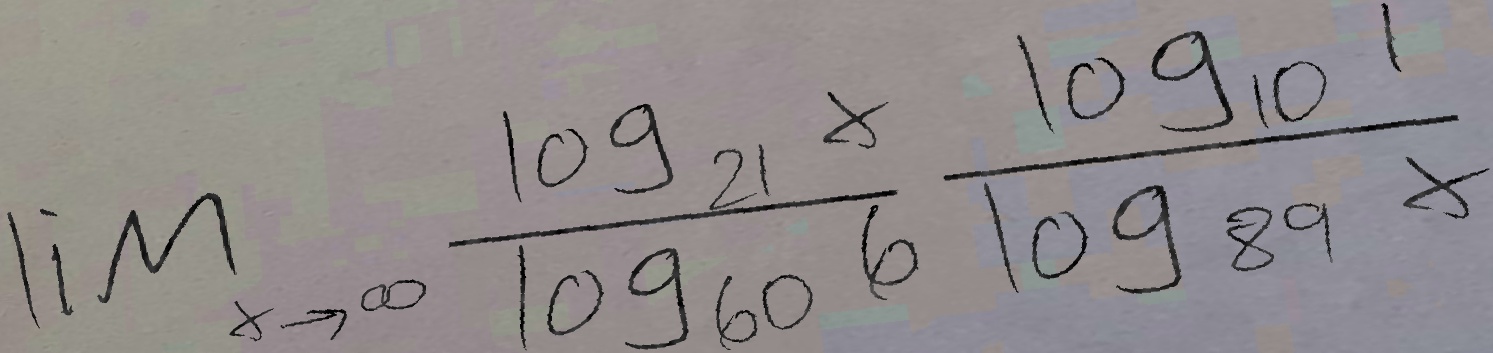 \lim_{x \to \infty} \frac{\log_{21} x}{\log_{60} 6} \frac{\log_{10} 1}{\log_{89} x}